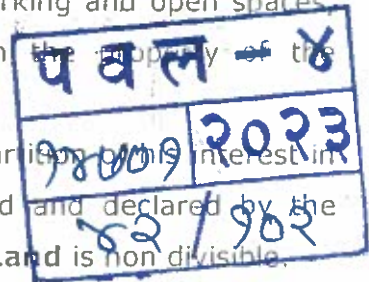 rking and open spaces,
the property of the
प व ल - ४
२०२३
artition of his interest in
d and declared by the
४२ / १०२
Land is non divisible.